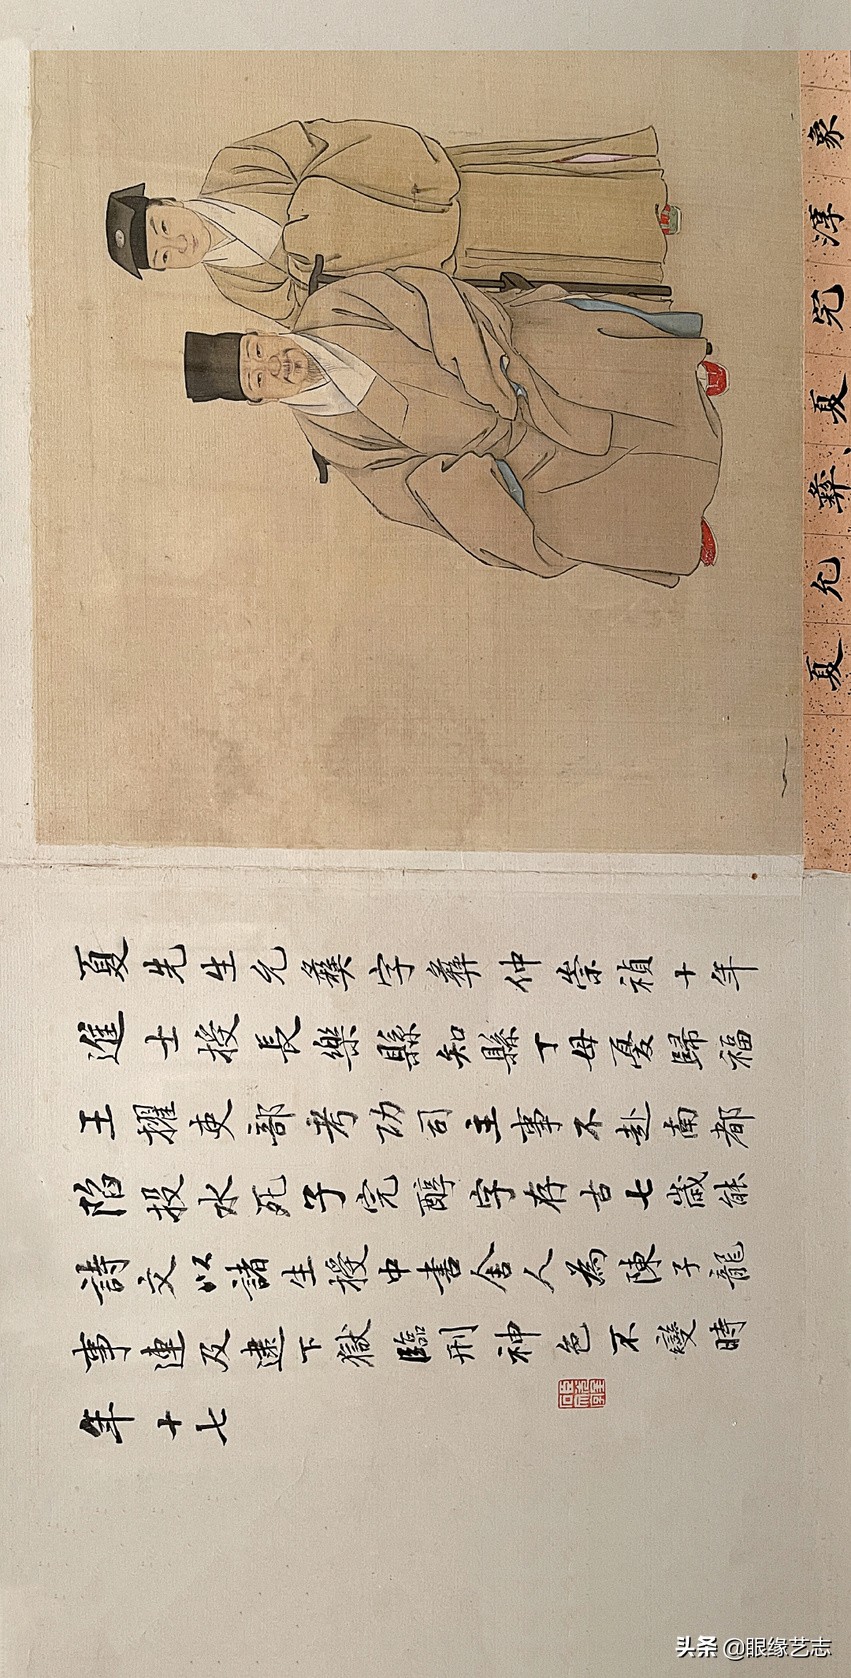 夏允彝、夏完淳象
夏先生允彝字彝仲崇禎十年
進士授長樂縣知縣丁母憂歸福
王擢吏部考功司主事不赴南都
陷投水死子完醇字存古七歲能
詩文以諸生授中書舍人為陳子龍
事連及逮下獄臨刑神色不變時
年十七
头条 @眼缘艺志